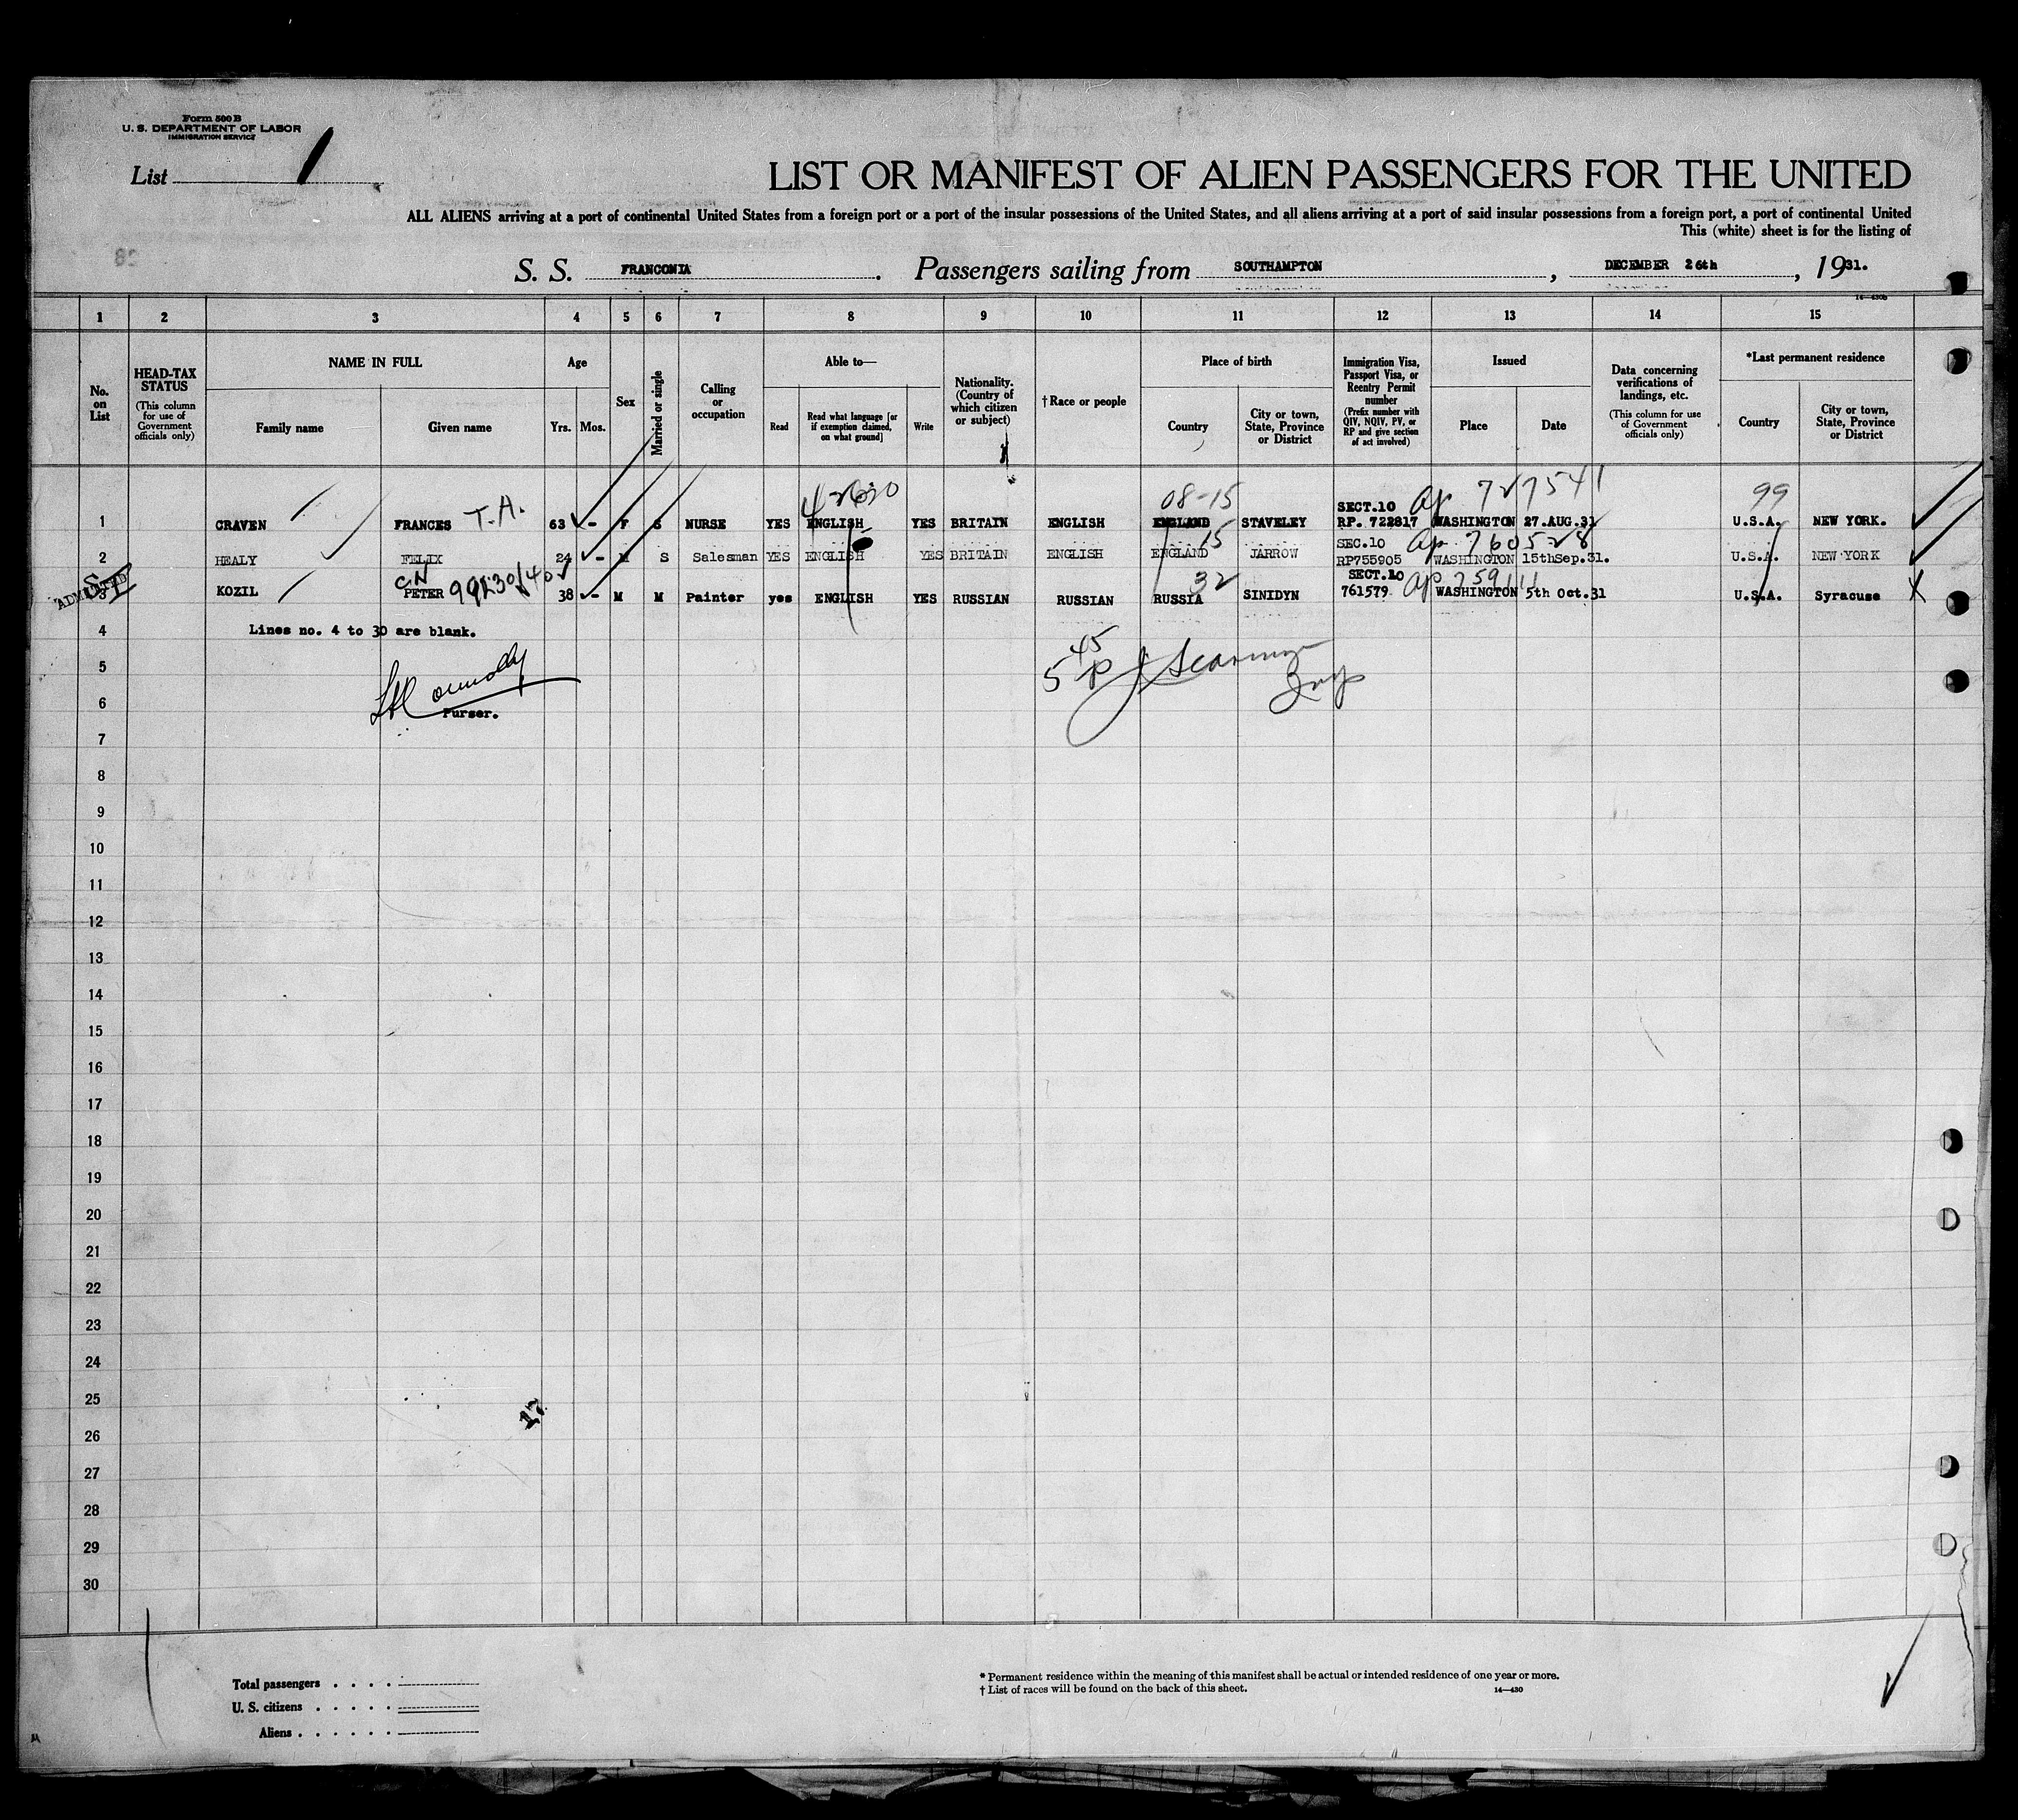 Form 500 B
U. S. DEPARTMENT OF LABOR
IMMIGRATION SERVICE
List 1
LIST OR MANIFEST OF ALIEN PASSENGERS FOR THE UNITED
ALL ALIENS arriving at a port of continental United States from a foreign port or a port of the insular possessions of the United States, and all aliens arriving at a port of said insular possessions from a foreign port, a port of continental United
This (white) sheet is for the listing of
S. S. FRANCONIA. Passengers sailing from SOUTHAMPTON, DECEMBER 26th, 1931.
1 2 3 4 5 6 7 8 9 10 11 12 13 14 15
No. on List
HEAD-TAX STATUS (This column for use of Government officials only)
NAME IN FULL
Family name Given name
Age
Yrs. Mos.
Sex
Married or single
Calling or occupation
Able to—
Read Read what language [or if exemption claimed, on what ground] Write
Nationality. (Country of which citizen or subject)
† Race or people
Place of birth
Country City or town, State, Province or District
Immigration Visa, Passport Visa, or Reentry Permit number (Prefix number with QIV, NQIV, PV, or RP and give section of act involved)
Issued
Place Date
Data concerning verifications of landings, etc. (This column for use of Government officials only)
*Last permanent residence
Country City or town, State, Province or District
08-15 SECT.10 727541 99
1 CRAVEN FRANCES T.A. 63 - F S NURSE YES ENGLISH YES BRITAIN ENGLISH ENGLAND STAVELEY RP. 722817 WASHINGTON 27.AUG.31 U.S.A. NEW YORK.
15 SEC.10 760528
2 HEALY FELIX 24 - M S Salesman YES ENGLISH YES BRITAIN ENGLISH ENGLAND JARROW RP755905 WASHINGTON 15thSep.31. U.S.A. NEW YORK
32 SECT.10
3 KOZIL PETER 38 - M M Painter yes ENGLISH YES RUSSIAN RUSSIAN RUSSIA SINIDYN 761579 WASHINGTON 5th Oct.31 U.S.A. Syracuse
4 Lines no. 4 to 30 are blank.
5
6 Purser.
7
8
9
10
11
12
13
14
15
16
17
18
19
20
21
22
23
24
25
17
26
27
28
29
30
Total passengers
U. S. citizens
Aliens
* Permanent residence within the meaning of this manifest shall be actual or intended residence of one year or more.
† List of races will be found on the back of this sheet. 14—430